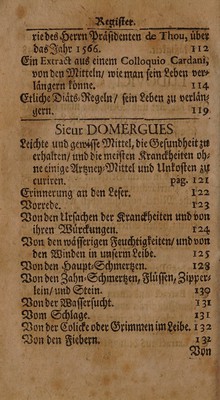 Register.
rie des Herrn Präsidenten de Thou, über
das Jahr 1566. 112
Ein Extract aus einem Colloquio Cardani,
von den Mitteln/ wie man sein Leben ver-
längern könne. 114
Etliche Diäts-Regeln/ sein Leben zu verlän-
gern. 119
Sieur DOMERGUES
Leichte und gewisse Mittel, die Gesundheit zu
erhalten/ und die meisten Kranckheiten oh-
ne einige Artzney-Mittel und Unkosten zu
curiren. pag. 121
Erinnerung an den Leser. 122
Vorrede. 123
Von den Ursachen der Kranckheiten und von
ihren Würckungen. 124
Von den wässerigen Feuchtigkeiten/ und von
den Winden in unserm Leibe. 125
Von den Haupt-Schmertzen. 128
Von den Zahn-Schmertzen, Flüssen, Zipper-
lein/ und Stein. 130
Von der Wassersucht. 131
Vom Schlage. 131
Von der Colicke oder Grimmen im Leibe. 132
Von den Fiebern. 132
Von